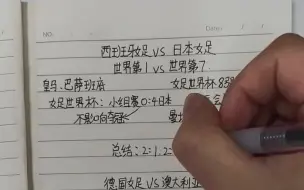 NO.
Date
西班牙女足 VS 日本女足
世界第1 VS 世界第7
皇马.巴萨班底 女足世界杯:888
女足世界杯:小组赛0:4日本 会
不影响夺冠
总结:2:1.2:
德国女足 VS 澳大利亚